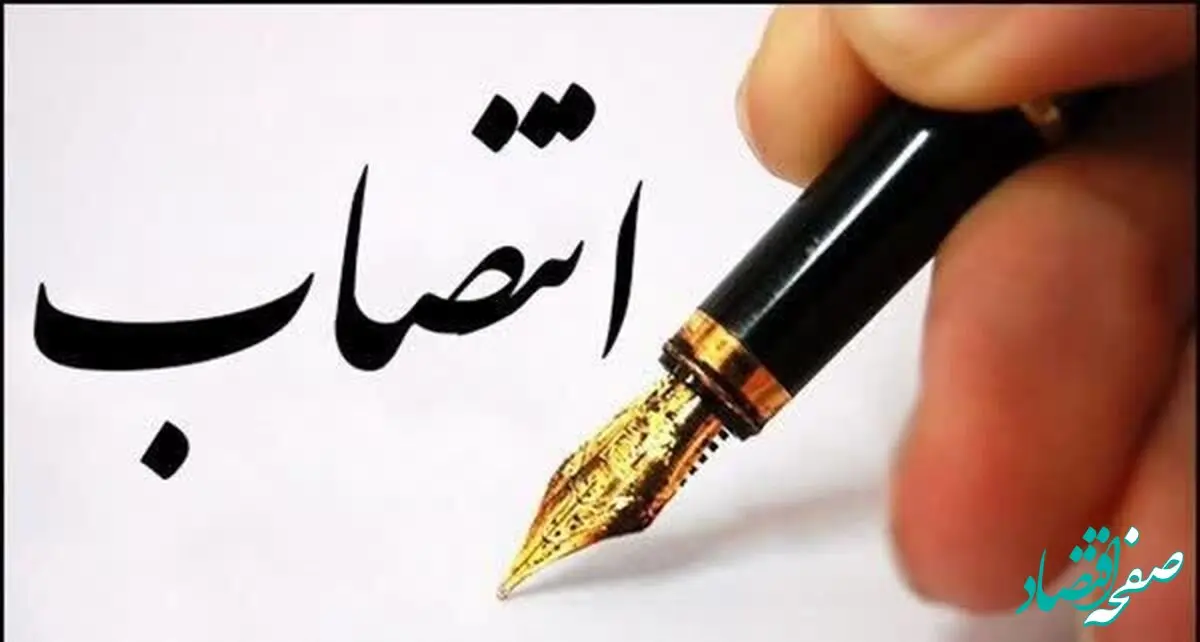 انتصاب
صفحه اقتصاد